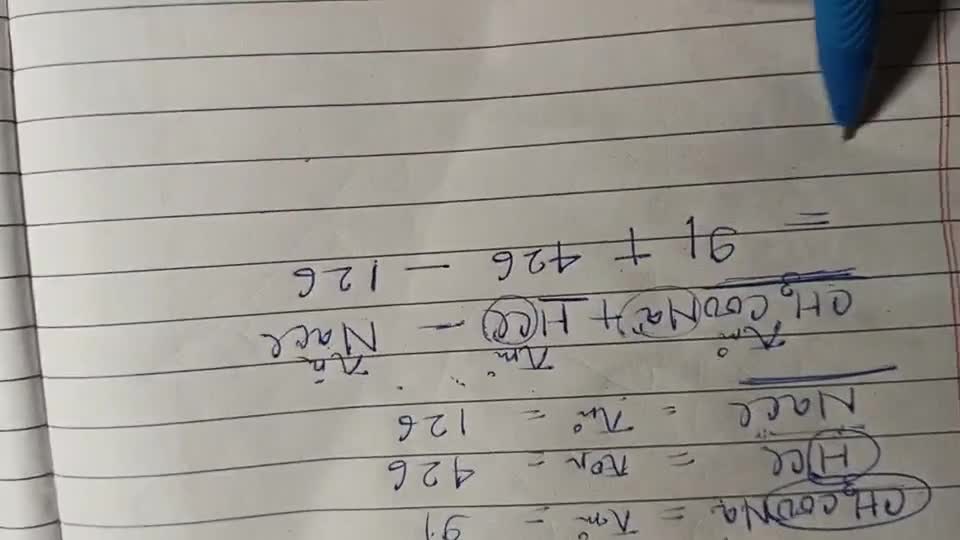 CH3COONa = λm° = 91
HCl = λm = 426
NaCl = λm° = 126
λm° λm° λm°
CH3COONa + HCl − NaCl
= 91 + 426 − 126